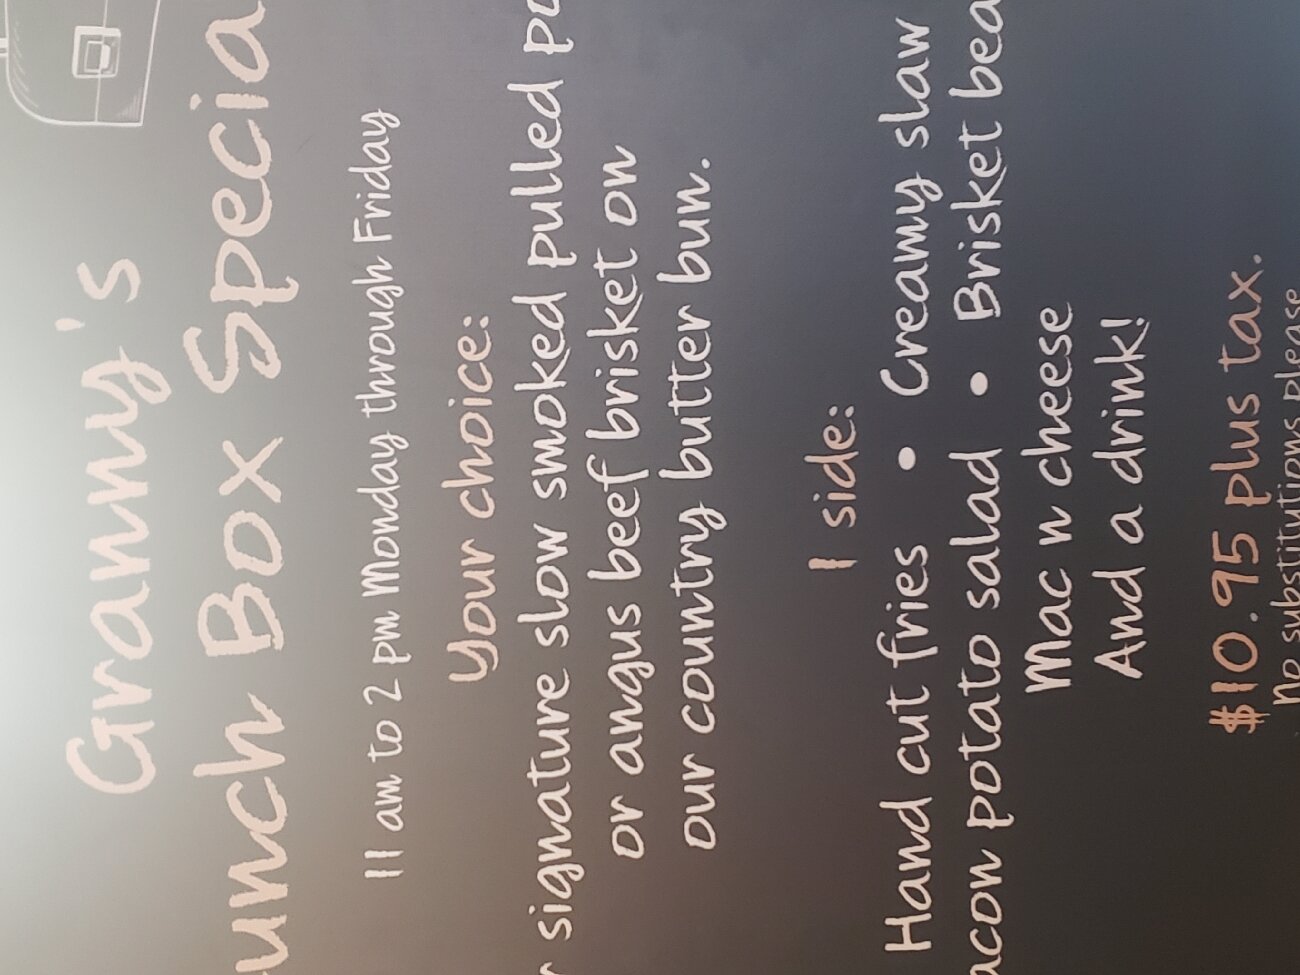 Granny's
unch Box Specia
11 am to 2 pm Monday through Friday
Your choice:
r signature slow smoked pulled po
or angus beef brisket on
our country butter bun.
1 side:
Hand cut fries • Creamy slaw
acon potato salad • Brisket bea
Mac n cheese
And a drink!
$10.95 plus tax.
No substitutions please